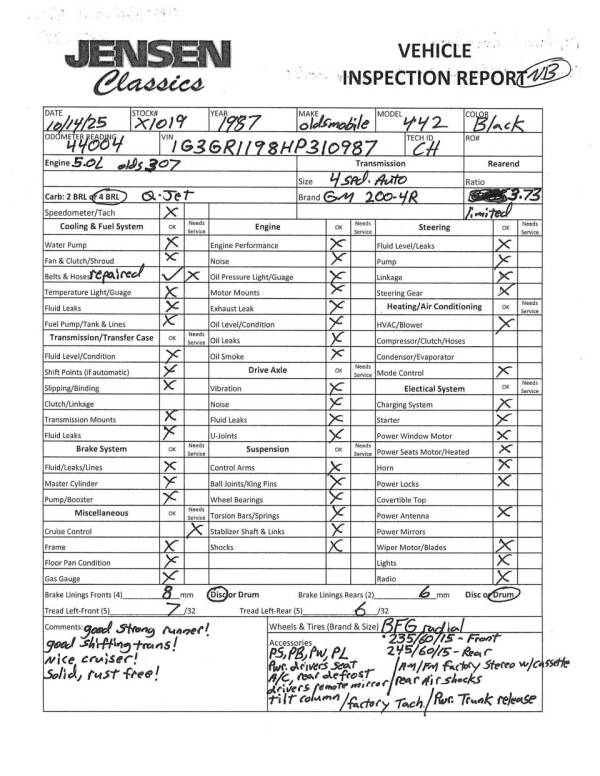 JENSEN
Classics
VEHICLE
INSPECTION REPORT NB
DATE STOCK# YEAR MAKE MODEL COLOR
10/14/25 X1019 1987 oldsmobile 442 Black
ODOMETER READING VIN TECH ID RO#
44004 1G3GR1198HP310987 CH
Engine 5.0L olds 307 Transmission Rearend
Size 4 spd. Auto Ratio
Carb: 2 BRL or 4 BRL Q-Jet Brand GM 200-4R 3.73
Speedometer/Tach X limited
Cooling & Fuel System OK Needs Service Engine OK Needs Service Steering OK Needs Service
Water Pump X Engine Performance X Fluid Level/Leaks X
Fan & Clutch/Shroud X Noise X Pump X
Belts & Hoses repaired ✓ X Oil Pressure Light/Guage X Linkage X
Temperature Light/Guage X Motor Mounts X Steering Gear X
Fluid Leaks X Exhaust Leak X Heating/Air Conditioning OK Needs Service
Fuel Pump/Tank & Lines X Oil Level/Condition X HVAC/Blower X
Transmission/Transfer Case OK Needs Service Oil Leaks X Compressor/Clutch/Hoses
Fluid Level/Condition X Oil Smoke X Condensor/Evaporator
Shift Points (if automatic) X Drive Axle OK Needs Service Mode Control X
Slipping/Binding X Vibration X Electical System OK Needs Service
Clutch/Linkage Noise X Charging System X
Transmission Mounts X Fluid Leaks X Starter X
Fluid Leaks X U-Joints X Power Window Motor X
Brake System OK Needs Service Suspension OK Needs Service Power Seats Motor/Heated X
Fluid/Leaks/Lines X Control Arms X Horn X
Master Cylinder X Ball Joints/King Pins X Power Locks X
Pump/Booster X Wheel Bearings X Covertible Top
Miscellaneous OK Needs Service Torsion Bars/Springs X Power Antenna X
Cruise Control X Stablizer Shaft & Links X Power Mirrors
Frame X Shocks X Wiper Motor/Blades X
Floor Pan Condition X Lights X
Gas Gauge X Radio X
Brake Linings Fronts (4) 8 mm Disc or Drum Brake Linings Rears (2) 6 mm Disc or Drum
Tread Left-Front (5) 7 /32 Tread Left-Rear (5) 6 /32
Comments: good strong runner!
good shifting trans!
Nice cruiser!
Solid, rust free!
Wheels & Tires (Brand & Size) BFG radial
235/60/15 - Front
245/60/15 - Rear
Accessories
PS, PB, PW, PL
Pwr. drivers seat / AM/FM factory Stereo w/cassette
A/C, rear defrost
drivers remote mirror / rear air shocks
tilt column / factory Tach. / Pwr. Trunk release